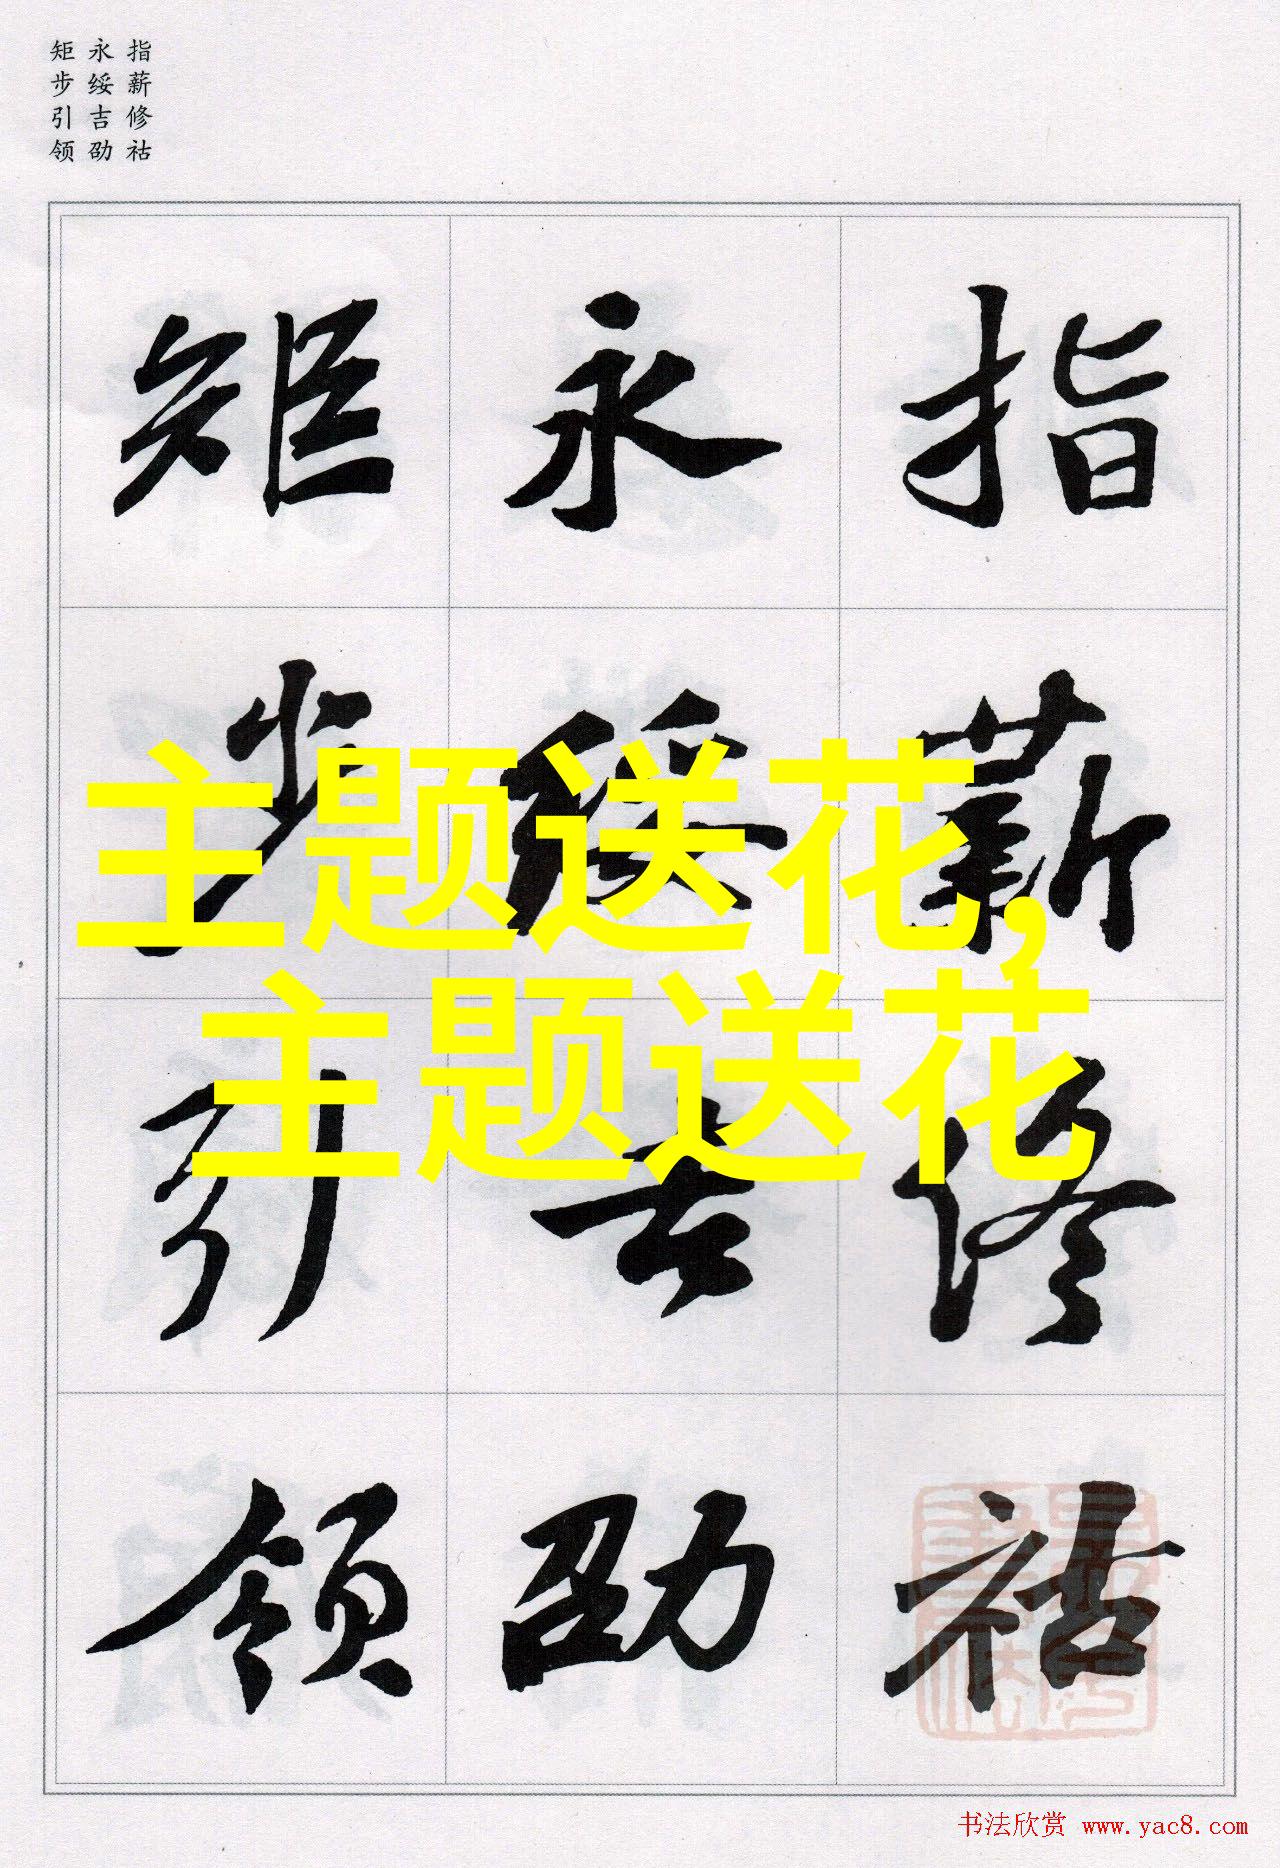 指薪修祜
永绥吉劭
矩步引领
指薪修祜
永绥吉劭
矩步引领
主题送花,
主题送花
书法欣赏 www.yac8.com